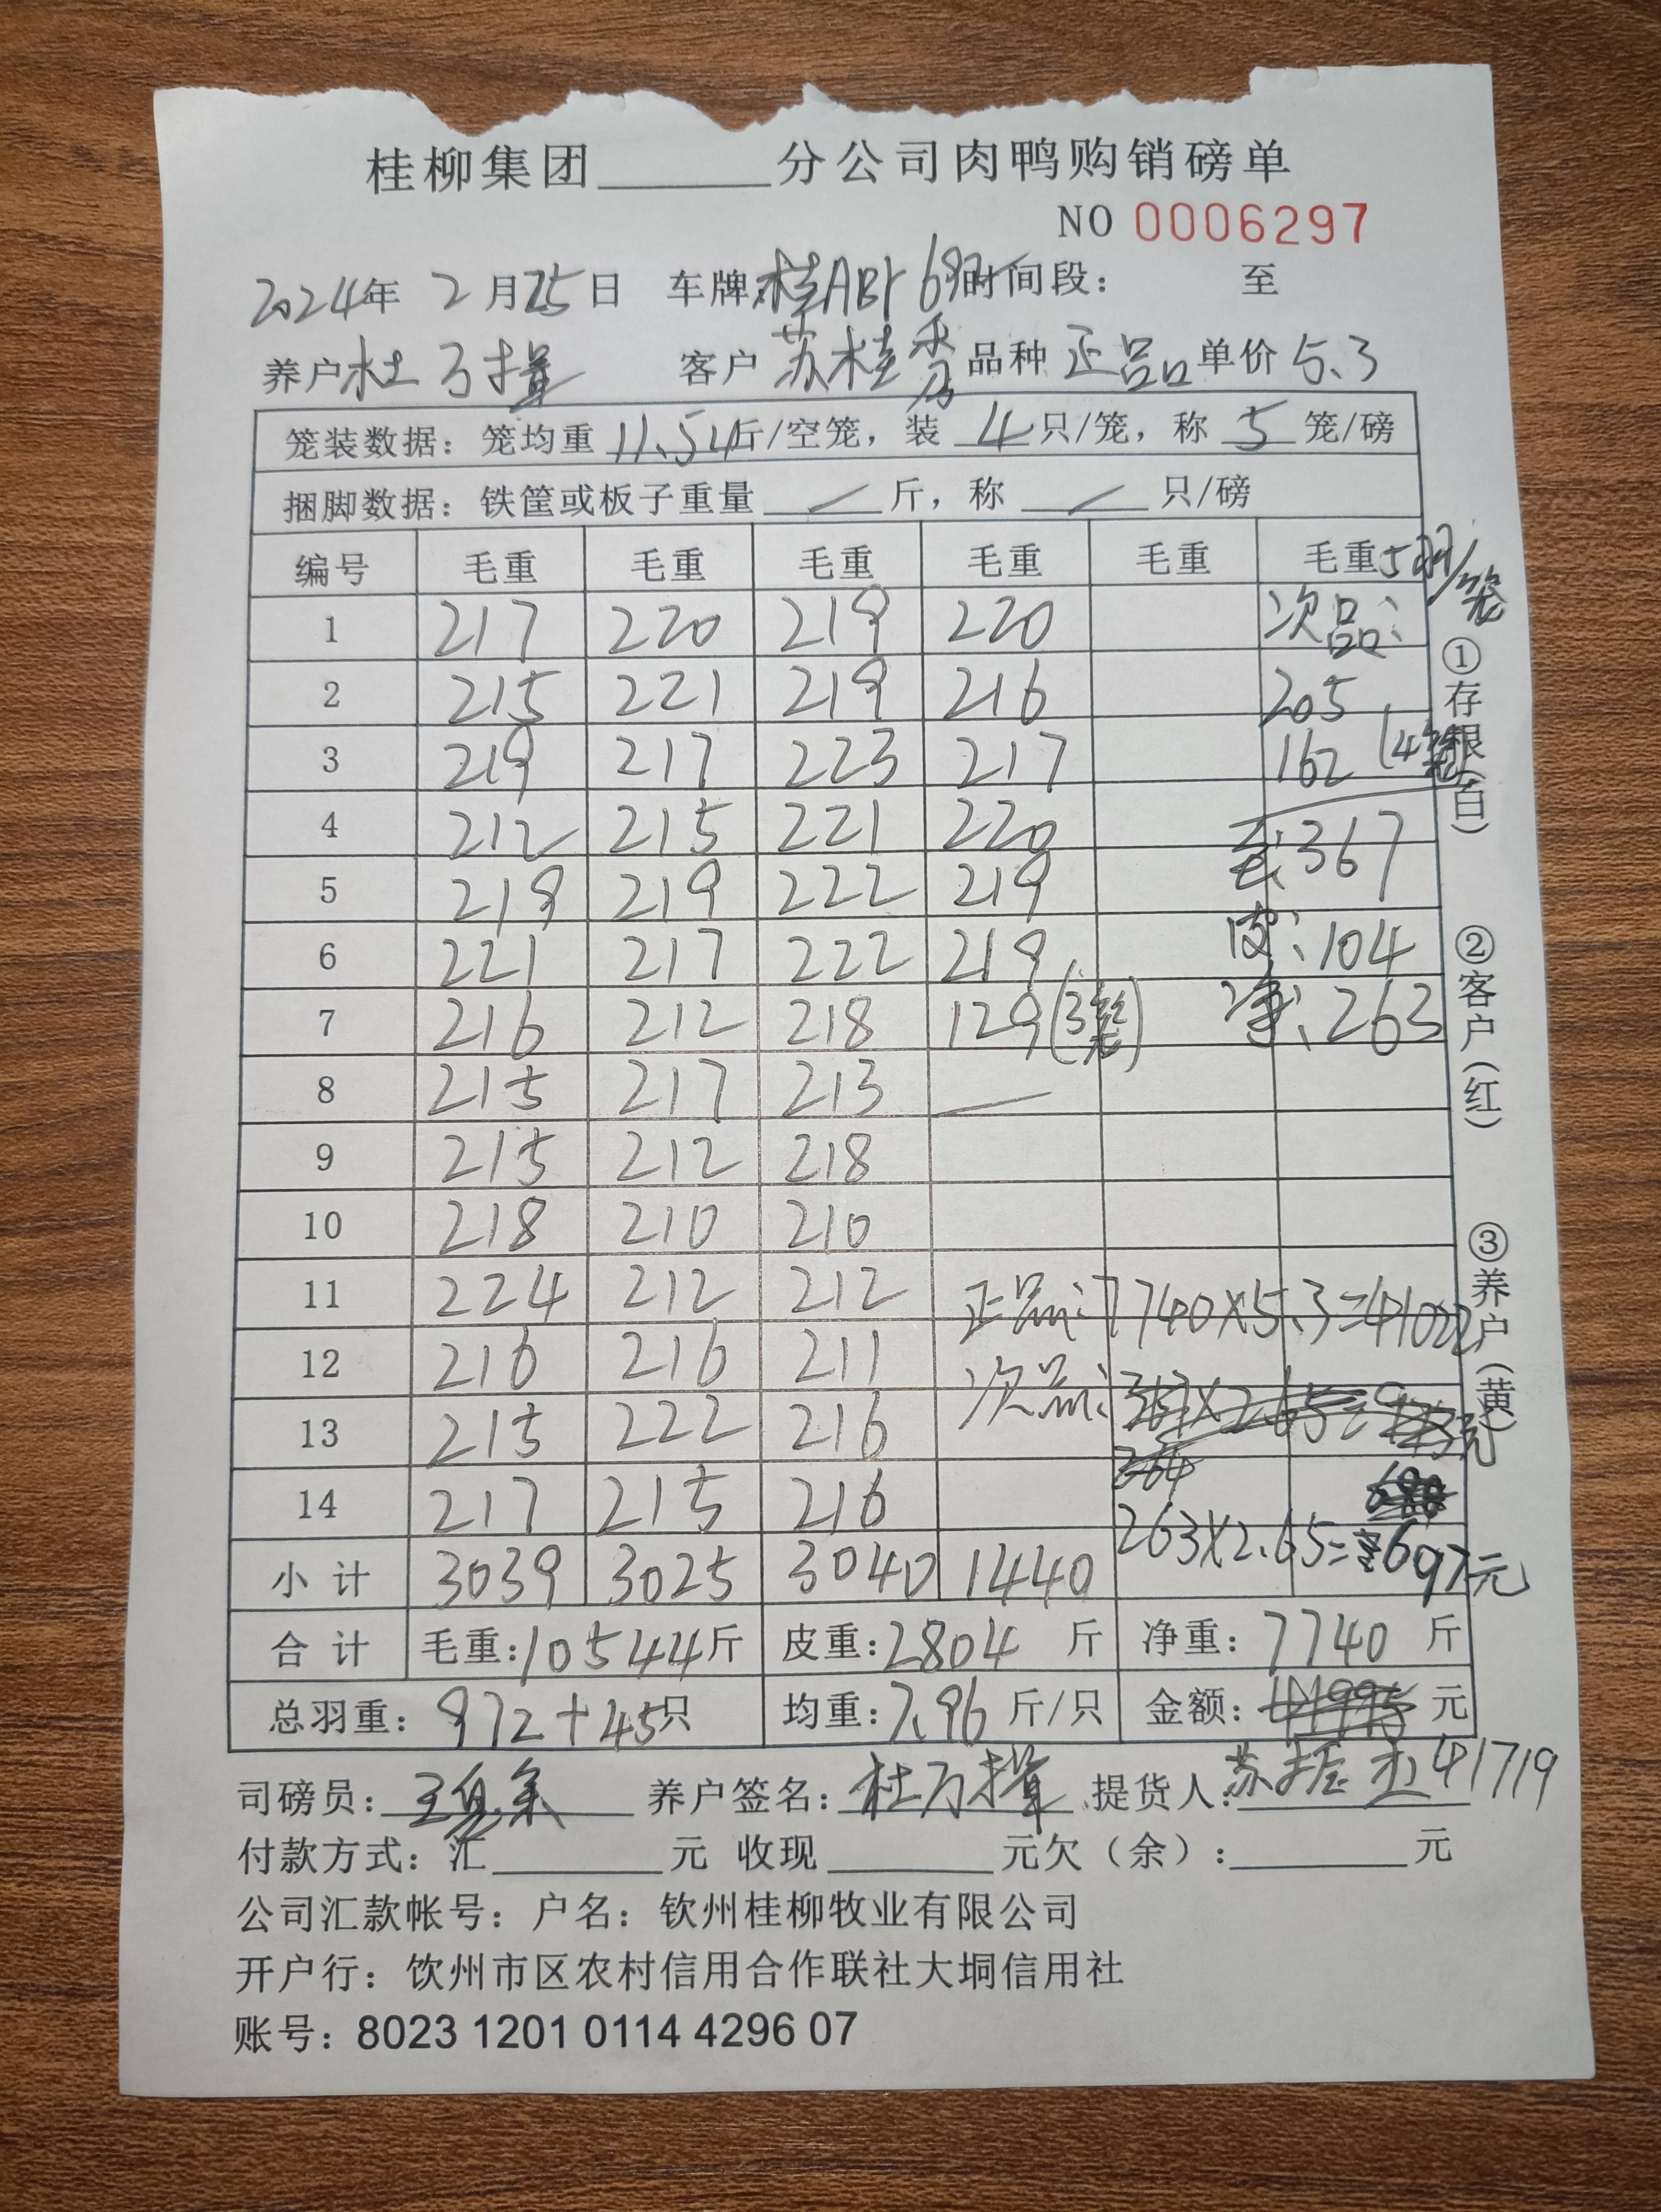 桂柳集团______分公司肉鸭购销磅单
NO 0006297
2024年 2 月 25 日 车牌: 时间段: 至
养户 杜万 客户 苏桂秀 品种 正品 单价 5.3
笼装数据: 笼均重 11.54 斤/空笼, 装 4 只/笼, 称 5 笼/磅
捆脚数据: 铁筐或板子重量 / 斤, 称 / 只/磅
编号 毛重 毛重 毛重 毛重 毛重 毛重 5只/笼
1 217 220 219 220 次品:
2 215 221 219 216 205
3 219 217 223 217 162 (4笼)
4 212 215 221 220 毛:367
5 219 219 222 219
6 221 217 222 219 皮:104
7 216 212 218 129(3笼) 净:263
8 215 217 213 —
9 215 212 218
10 218 210 210
11 224 212 212 正品:7740×5.3=41022
12 216 216 211 次品:
13 215 222 216
14 217 215 216
263×2.65=697元
小计 3039 3025 3040 1440
合计 毛重:10544斤 皮重:2804 斤 净重:7740 斤
总羽重:972+45只 均重:7.96 斤/只 金额: 元
41719
司磅员: 养户签名:杜万 提货人:苏
付款方式: 汇______元 收现______元欠(余):______元
公司汇款帐号: 户名: 钦州桂柳牧业有限公司
开户行: 钦州市区农村信用合作联社大垌信用社
账号: 8023 1201 0114 4296 07
①存根(白)
②客户(红)
③养户(黄)